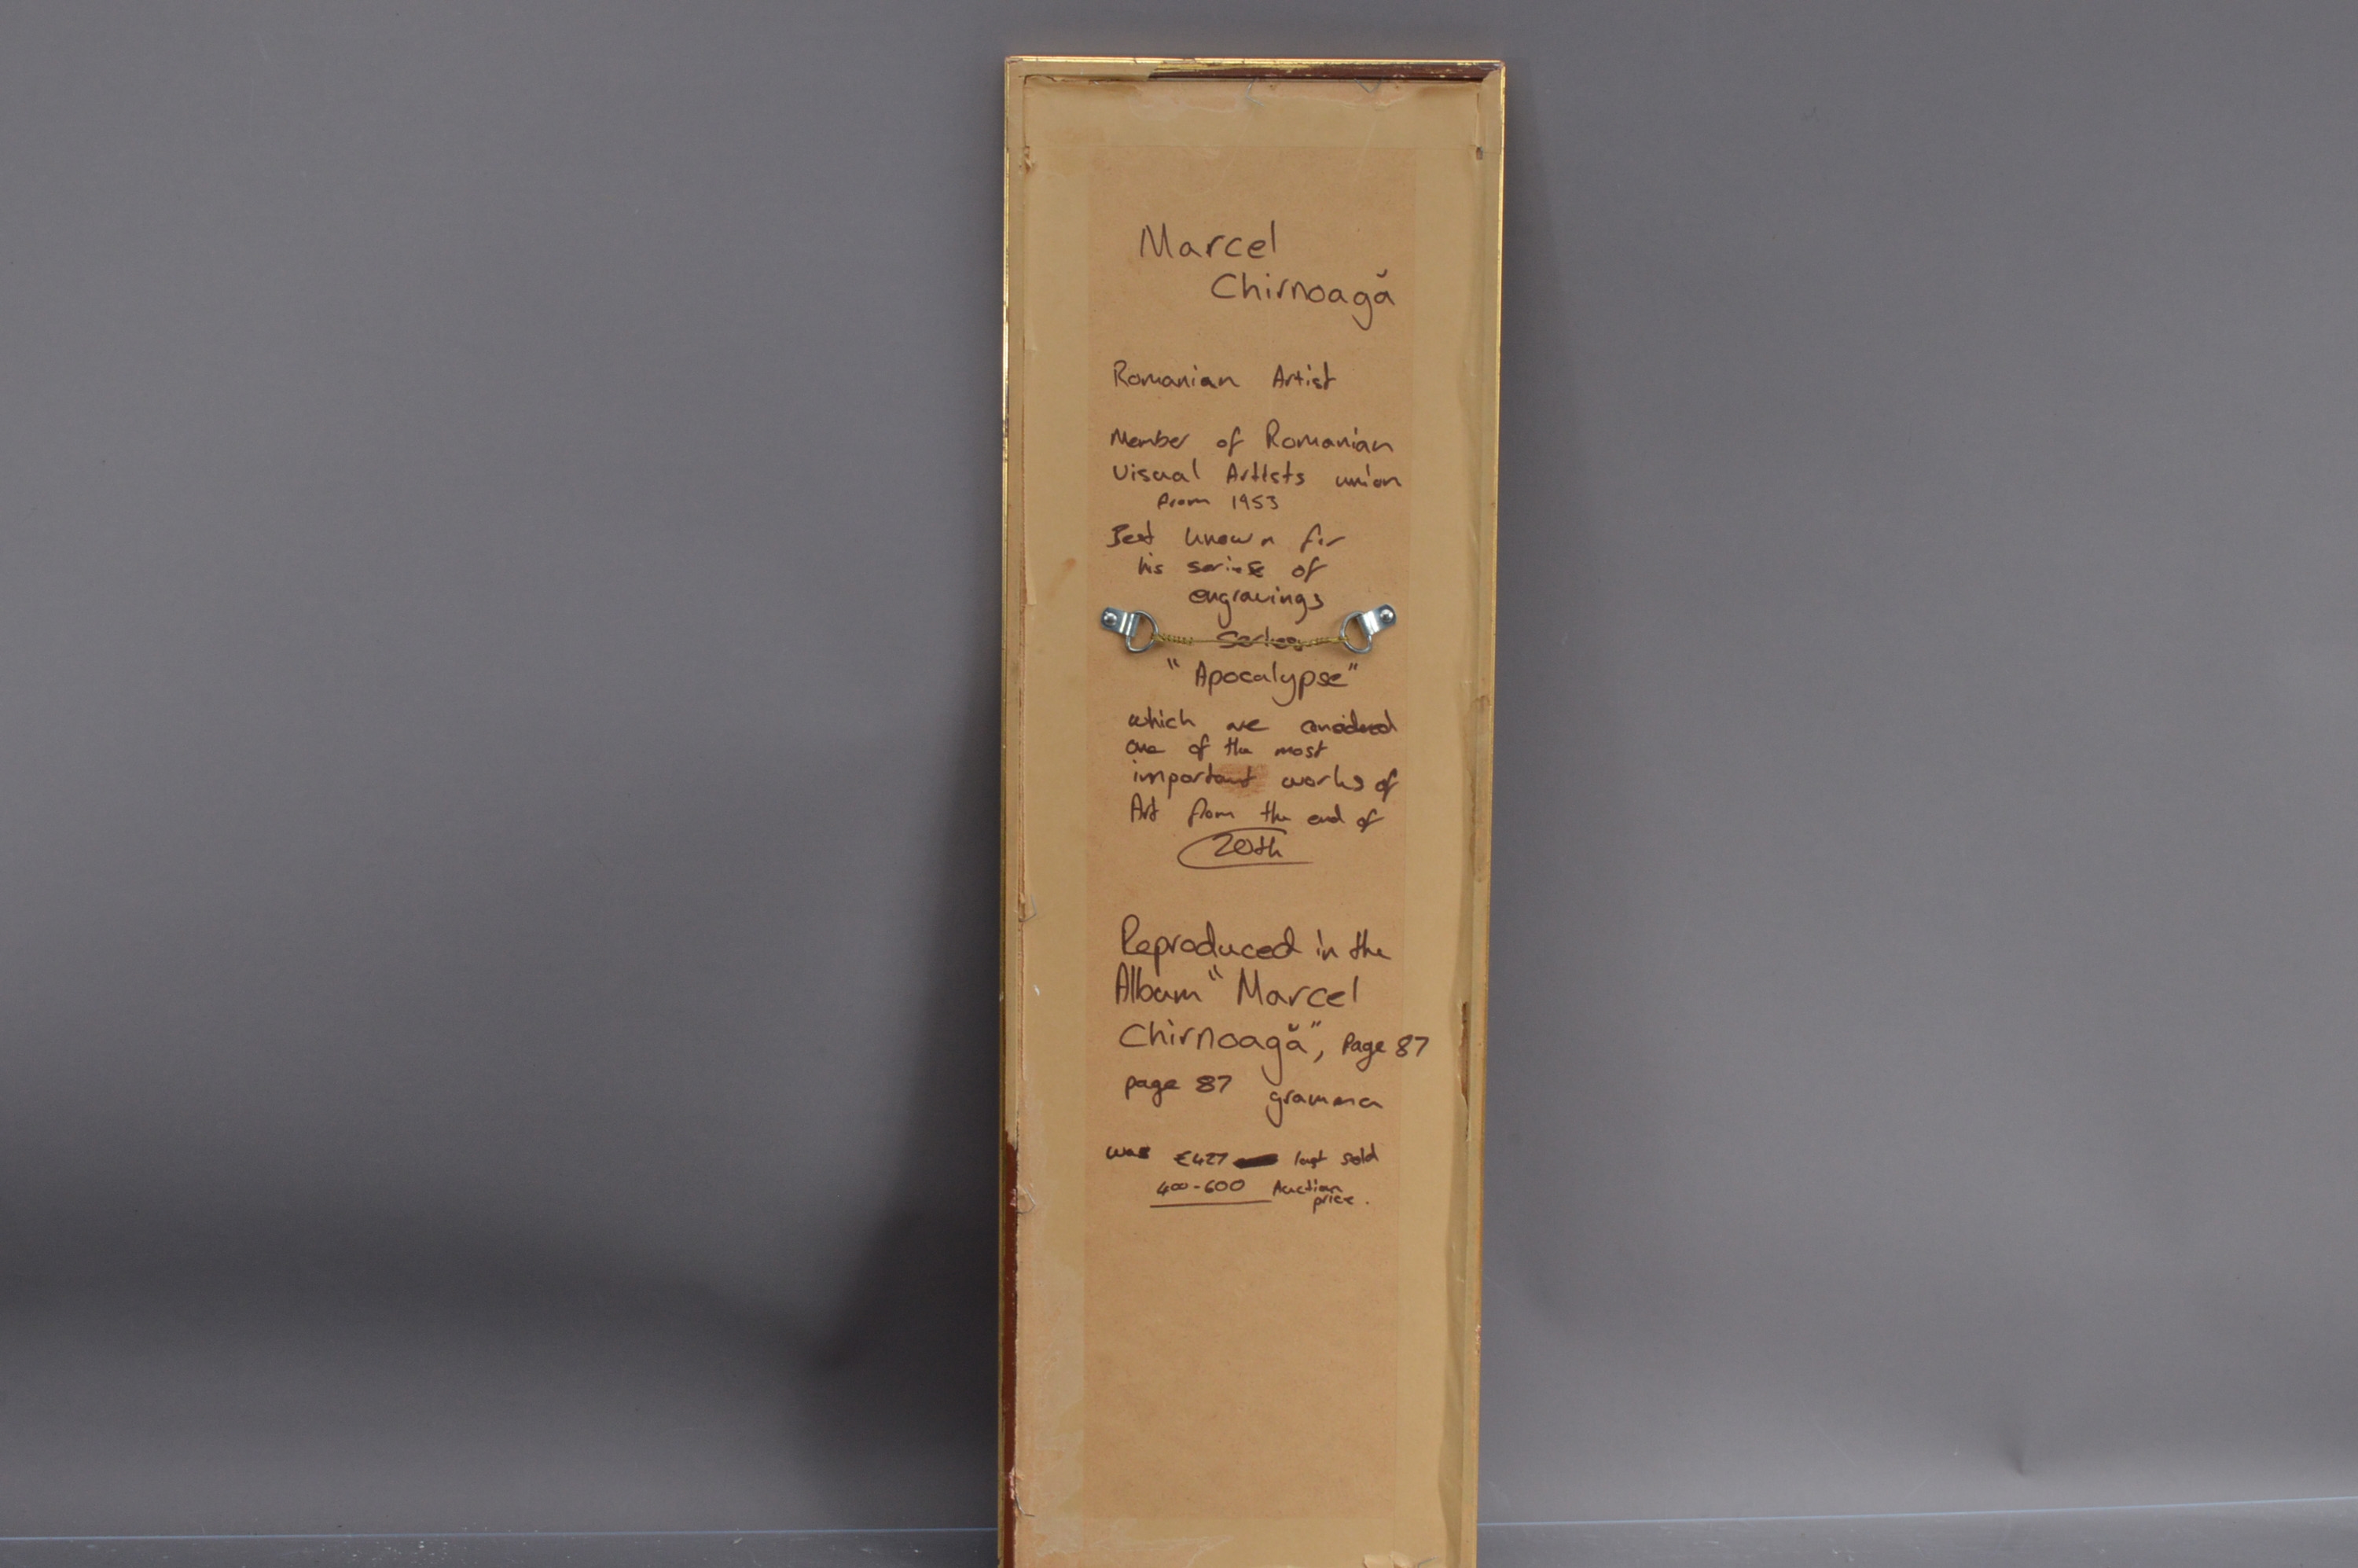 Marcel
Chirnoagă
Romanian Artist
Member of Romanian
Visual Artists union
from 1953
Best known for
his series of
engravings
Series
"Apocalypse"
which are considered
one of the most
important works of
Art from the end of
20th
Reproduced in the
Album "Marcel
Chirnoagă", Page 87
page 87 gramma
was €427 last sold
400-600 Auction
price.